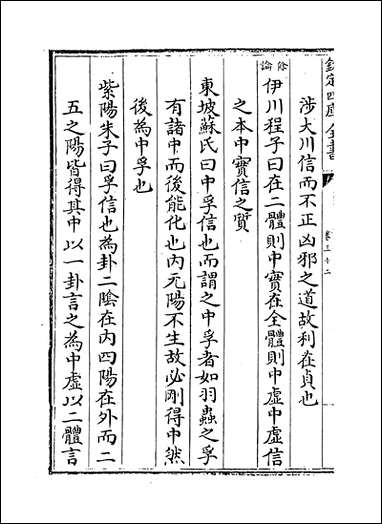 欽定四庫全書
卷三十二
涉大川信而不正凶邪之道故利在貞也
餘論
伊川程子曰在二體則中實在全體則中虛中虛信
之本中實信之質
東坡蘇氏曰中孚信也而謂之中孚者如羽蟲之孚
有諸中而後能化也内无陽不生故必剛得中然
後為中孚也
紫陽朱子曰孚信也為卦二陰在内四陽在外而二
五之陽皆得其中以一卦言之為中虛以二體言